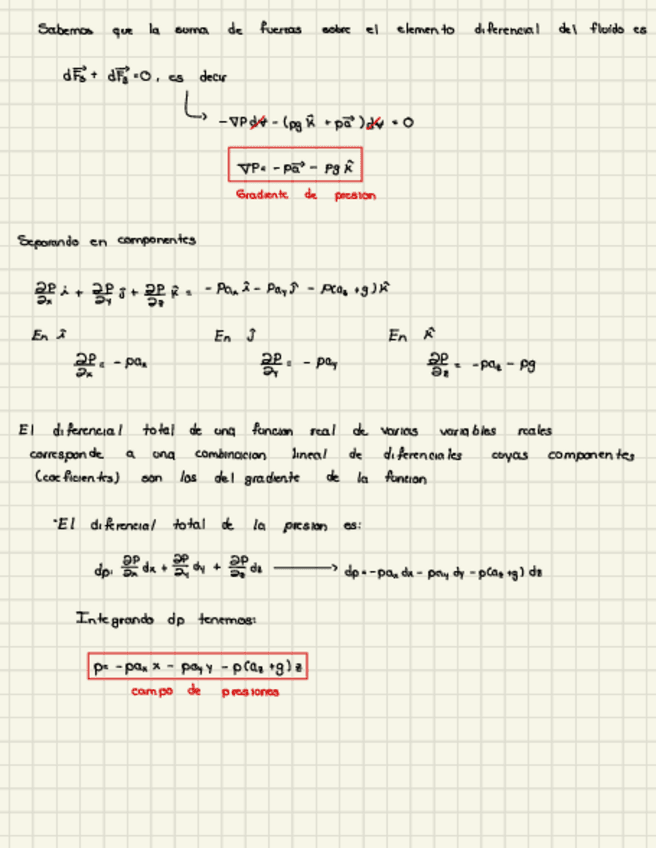 Sabemos que la suma de fuerzas sobre el elemento diferencial del fluido es
dF⃗s + dF⃗B = 0, es decir
-∇P d∀ - (ρg k̂ + ρa⃗) d∀ = 0
∇P = -ρa⃗ - ρg k̂
Gradiente de presion
Separando en componentes
∂P/∂x î + ∂P/∂y ĵ + ∂P/∂z k̂ = -ρax î - ρay ĵ - ρ(az + g) k̂
En î En ĵ En k̂
∂P/∂x = -ρax ∂P/∂y = -ρay ∂P/∂z = -ρaz - ρg
El diferencial total de una funcion real de varias variables reales
corresponde a una combinacion lineal de diferenciales cuyas componentes
(coeficientes) son los del gradiente de la funcion
·El diferencial total de la presion es:
dp= ∂P/∂x dx + ∂P/∂y dy + ∂P/∂z dz ⟶ dp = -ρax dx - ρay dy - ρ(az + g) dz
Integrando dp tenemos:
p= -ρax x - ρay y - ρ(az + g) z
campo de presiones